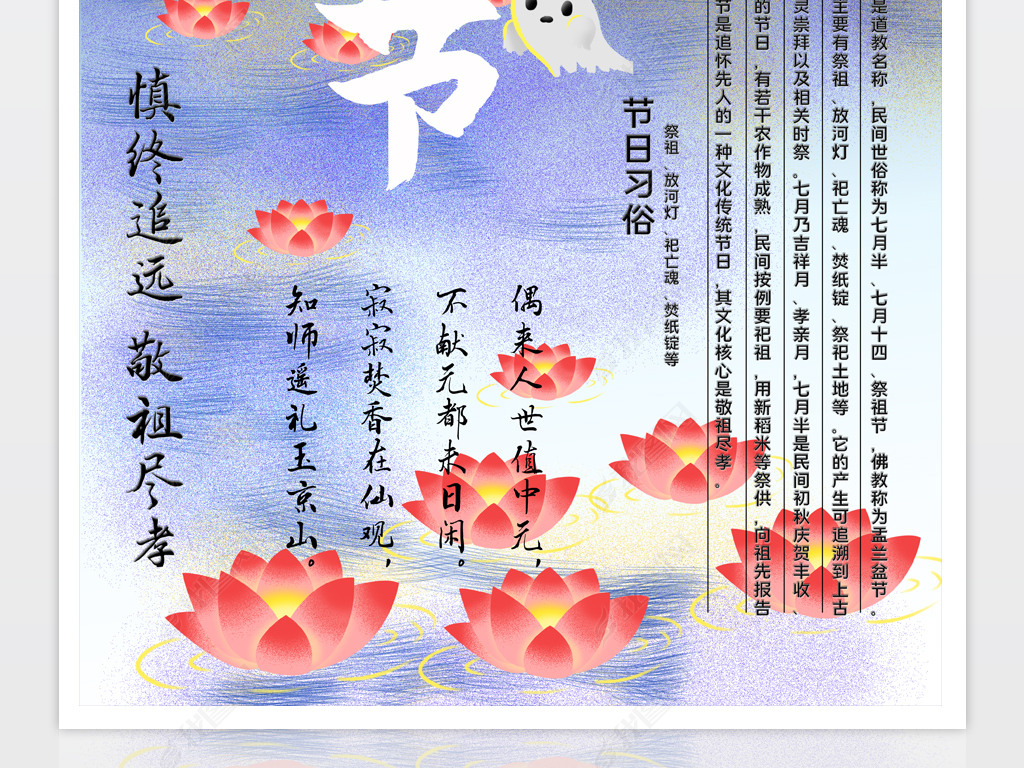 是道教名称,民间世俗称为七月半、七月十四、祭祖节,佛教称为盂兰盆节。
主要有祭祖、放河灯、祀亡魂、焚纸锭、祭祀土地等。它的产生可追溯到上古
灵崇拜以及相关时祭。七月乃吉祥月、孝亲月,七月半是民间初秋庆贺丰收、
的节日,有若干农作物成熟,民间按例要祀祖,用新稻米等祭供,向祖先报告
节是追怀先人的一种文化传统节日,其文化核心是敬祖尽孝。
节日习俗
祭祖、放河灯、祀亡魂、焚纸锭等
节
偶来人世值中元,
不献元都未日闲。
寂寂焚香在仙观,
知师遥礼玉京山。
慎终追远 敬祖尽孝